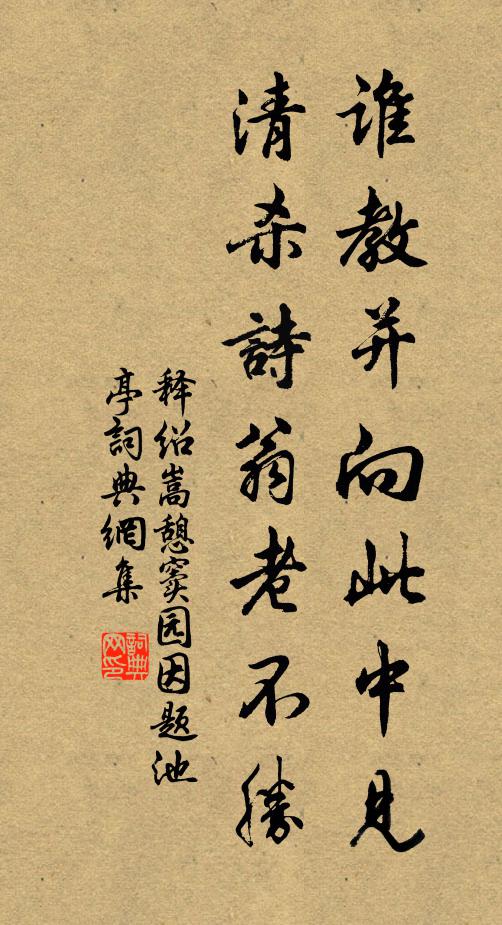 谁教并向此中见
清杀詩翁老不勝
释绍嵩憩窦园因题池
亭詞典網集
詞典
网印